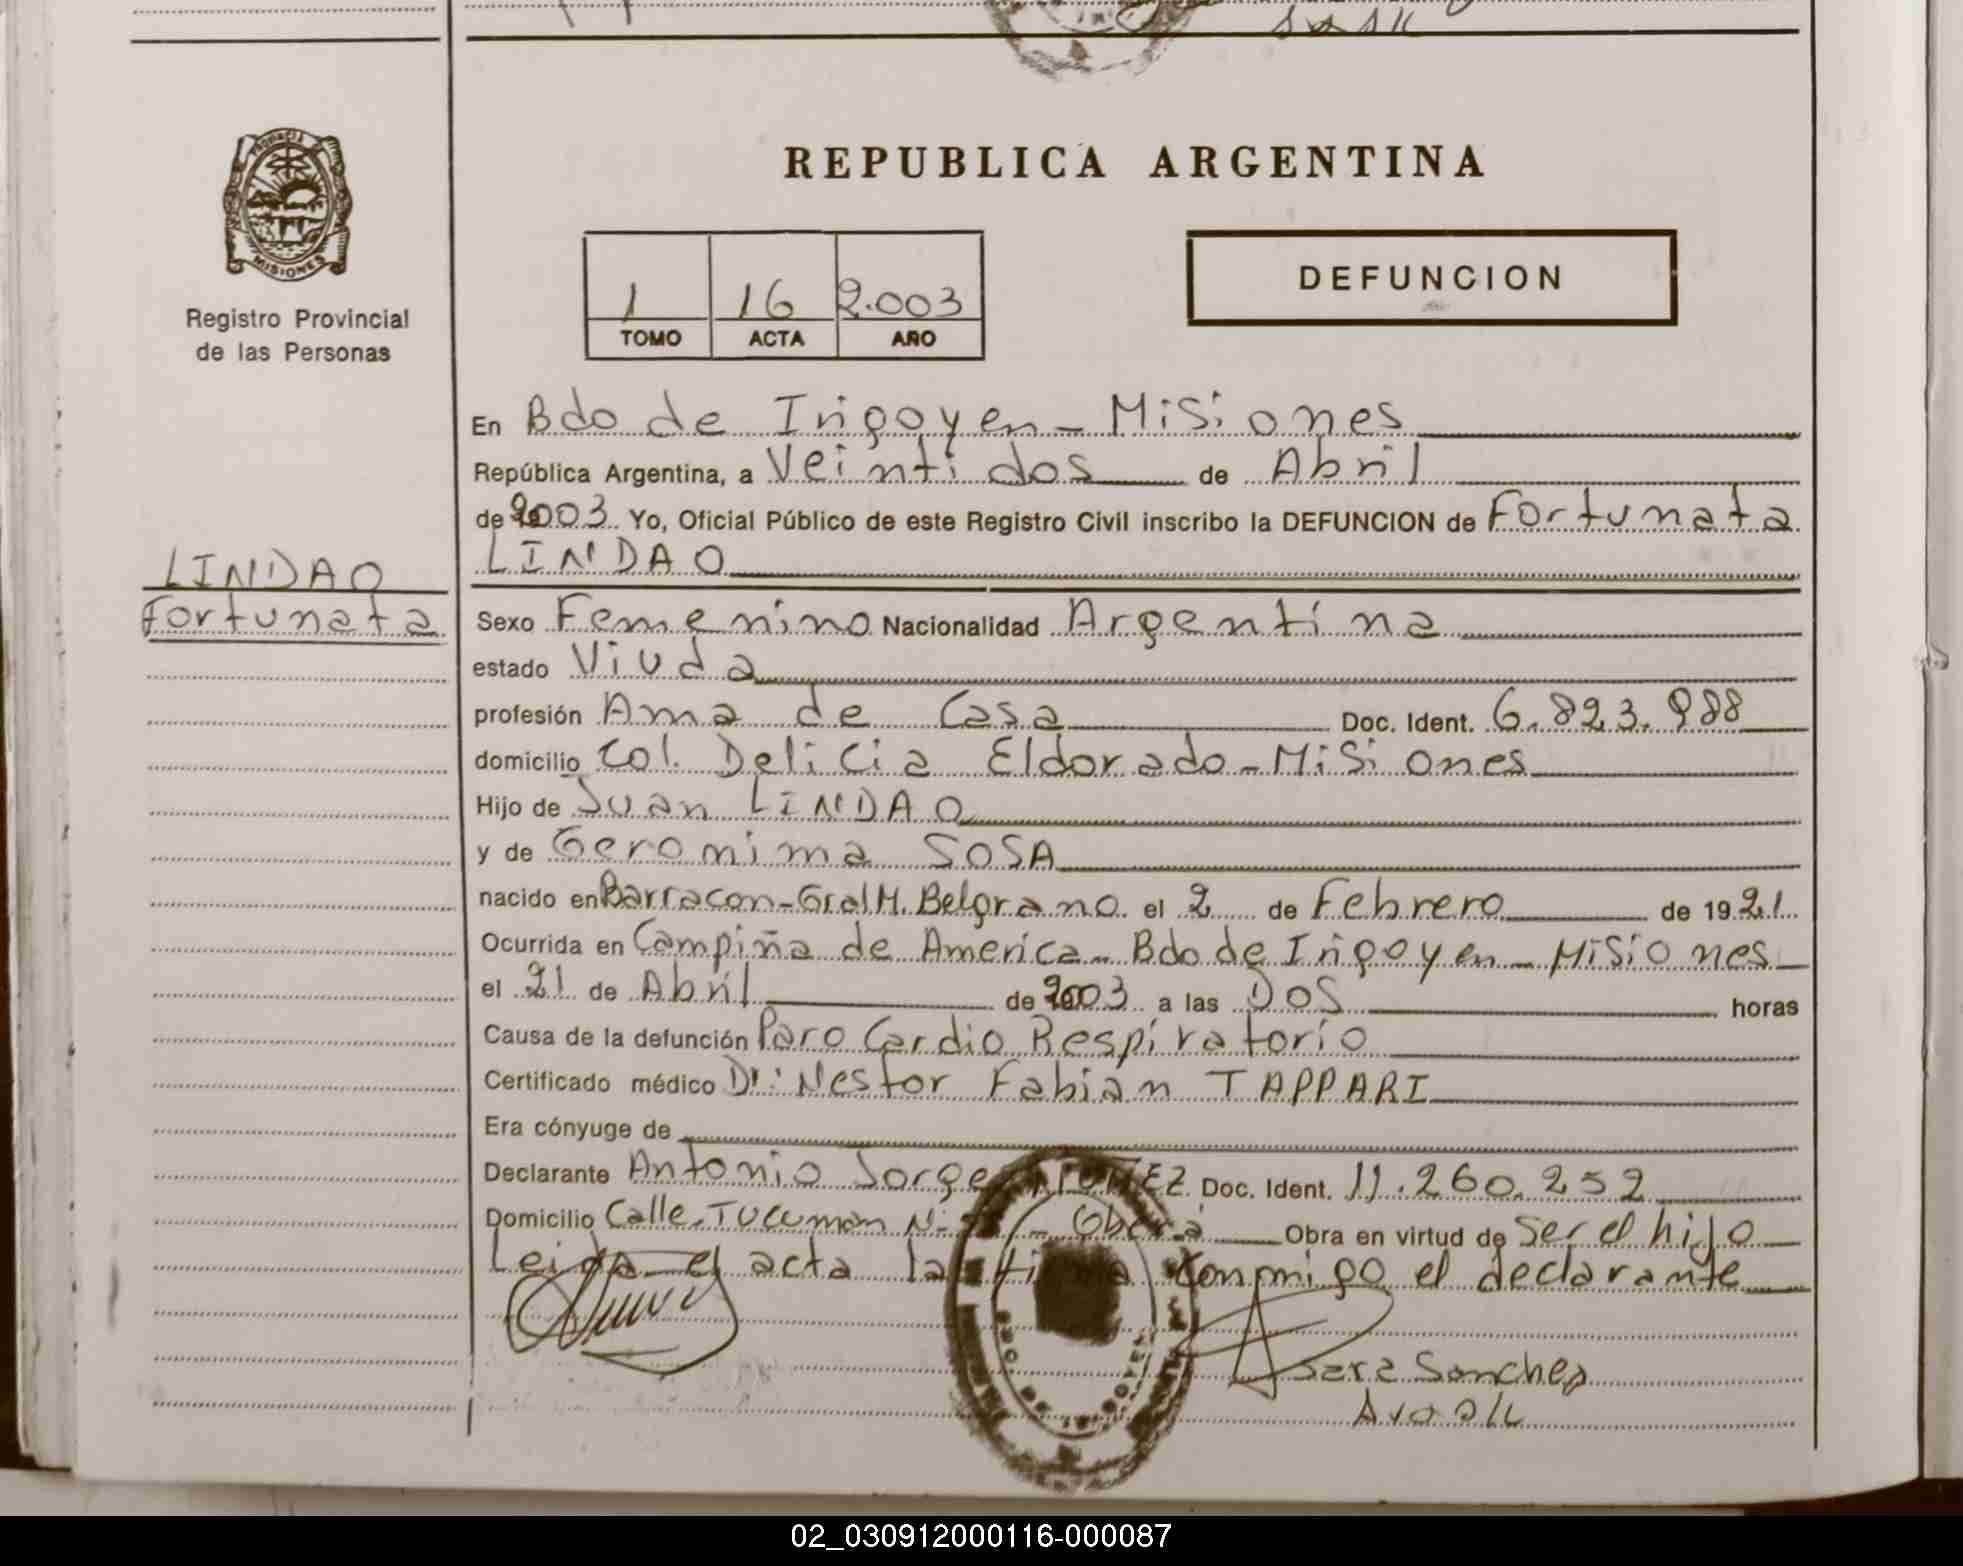 PROVINCIA
MISIONES
Registro Provincial
de las Personas
REPUBLICA ARGENTINA
1 16 2.003
TOMO ACTA AÑO
DEFUNCION
En Bdo de Irigoyen - Misiones
República Argentina, a Veinti dos de Abril
de 2003 Yo, Oficial Público de este Registro Civil inscribo la DEFUNCION de Fortunata
LINDAO
LINDAO
Fortunata
Sexo Femenino Nacionalidad Argentina
estado Viuda
profesión Ama de Casa Doc. Ident. 6.823.988
domicilio Col. Delicia Eldorado - Misiones
Hijo de Juan LINDAO
y de Geronima SOSA
nacido en Barracon - Gral M. Belgrano el 2 de Febrero de 1921
Ocurrida en Campiña de America - Bdo de Irigoyen - Misiones
el 21 de Abril de 2003 a las Dos horas
Causa de la defunción Paro Cardio Respiratorio
Certificado médico Dr: Nestor Fabian TAPPARI
Era cónyuge de
Declarante Antonio Jorge Doc. Ident. 11.260.252
Domicilio Calle Tucuman Oberá Obra en virtud de Ser el hijo
Leida el acta la conmigo el declarante
Sara Sanchez